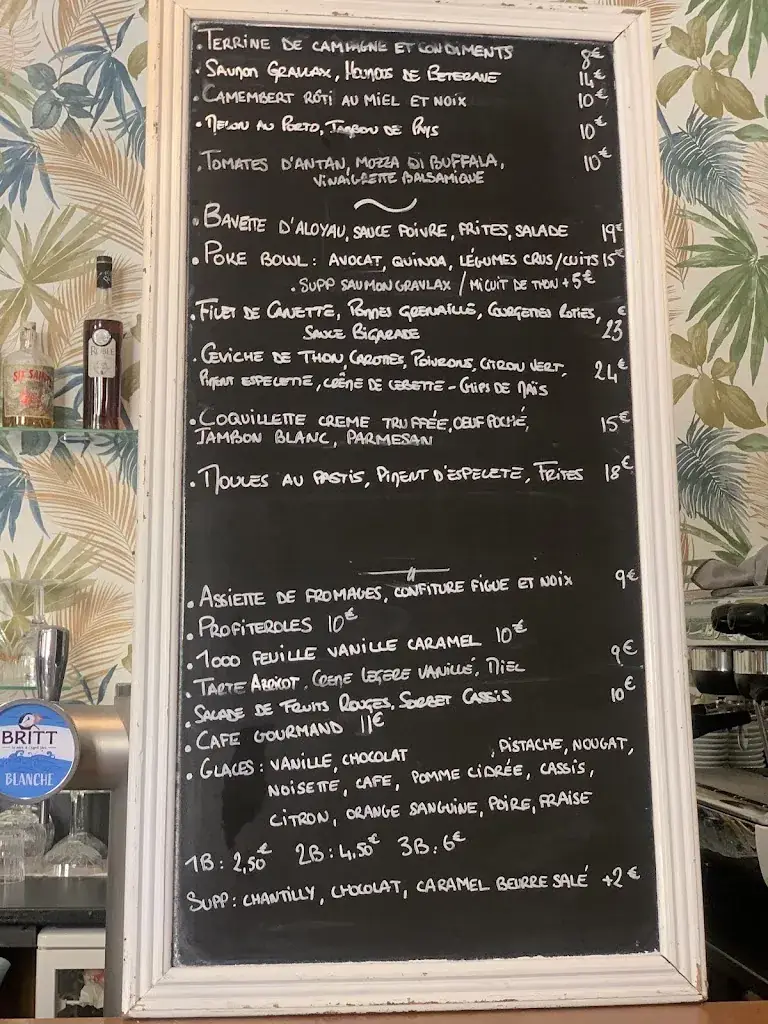 .TERRINE DE CAMPAGNE ET CONDIMENTS 8€
.SAUMON GRAVLAX, HOUMOUS DE BETERAVE 14€
.CAMEMBERT RÔTI AU MIEL ET NOIX 10€
.MELON AU PORTO, JAMBON DE PAYS 10€
.TOMATES D'ANTAN, MOZZA DI BUFFALA, 10€
VINAIGRETTE BALSAMIQUE
.BAVETTE D'ALOYAU, SAUCE POIVRE, FRITES, SALADE 19€
.POKE BOWL : AVOCAT, QUINOA, LÉGUMES CRUS/CUITS 15€
.SUPP SAUMON GRAVLAX / MICUIT DE THON +5€
.FILET DE CANETTE, POMMES GRENAILLE, COURGETTES ROTIES, 23€
SAUCE BIGARADE
.CEVICHE DE THON CAROTTES, POIVRONS, CITRON VERT, 24€
PIMENT ESPELETTE, CRÈME DE CEBETTE - CHIPS DE MAÏS
.COQUILLETTE CREME TRUFFÉE, OEUF POCHÉ, 15€
JAMBON BLANC, PARMESAN
.MOULES AU PASTIS, PIMENT D'ESPELETE, FRITES 18€
.ASSIETTE DE FROMAGES, CONFITURE FIGUE ET NOIX 9€
.PROFITEROLES 10€
.1000 FEUILLE VANILLE CARAMEL 10€
.TARTE ABRICOT, CREME LEGERE VANILLE, MIEL 9€
.SALADE DE FRUITS ROUGES, SORBET CASSIS 10€
.CAFE GOURMAND 11€
.GLACES : VANILLE, CHOCOLAT , PISTACHE, NOUGAT,
NOISETTE, CAFE, POMME CIDRÉE, CASSIS,
CITRON, ORANGE SANGUINE, POIRE, FRAISE
1B : 2,50€ 2B : 4,50€ 3B : 6€
SUPP : CHANTILLY, CHOCOLAT, CARAMEL BEURRE SALÉ +2€
BRITT
BLANCHE